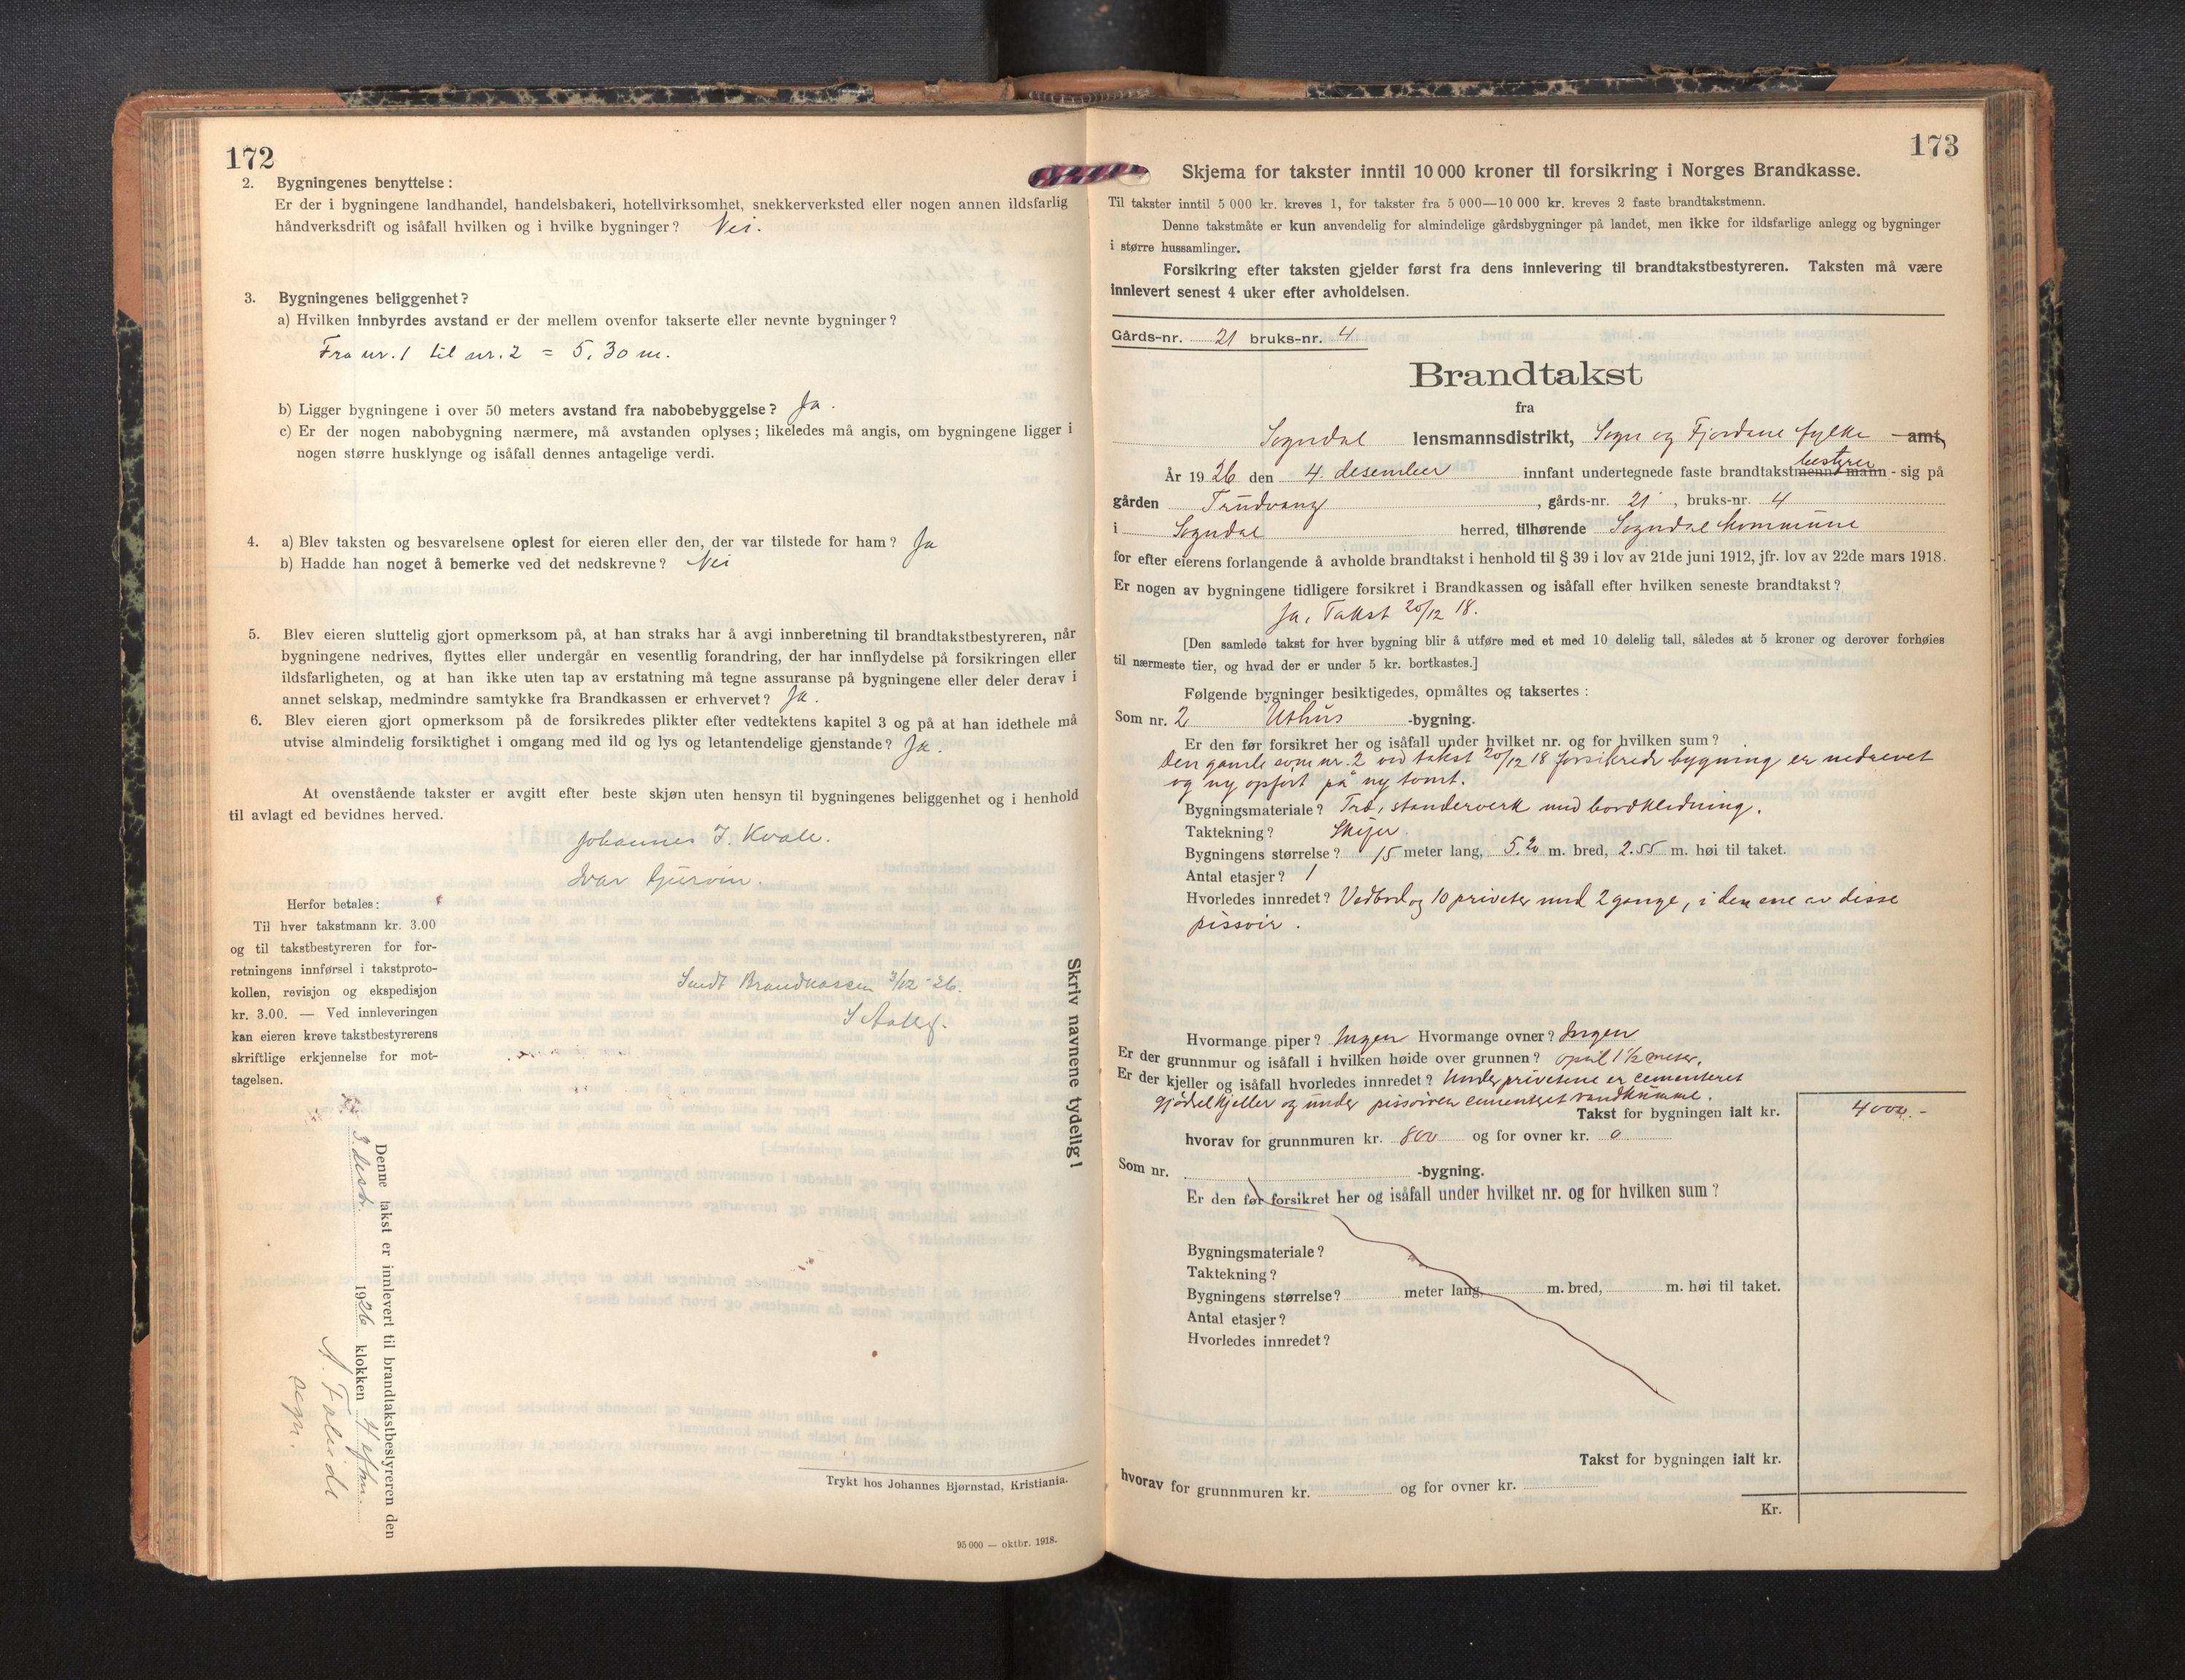 172
2. Bygningenes benyttelse:
Er der i bygningene landhandel, handelsbakeri, hotellvirksomhet, snekkerverksted eller nogen annen ildsfarlig
håndverksdrift og isåfall hvilken og i hvilke bygninger? Nei.
3. Bygningenes beliggenhet?
a) Hvilken innbyrdes avstand er der mellem ovenfor takserte eller nevnte bygninger?
Fra nr. 1 til nr. 2 = 5,30 m.
b) Ligger bygningene i over 50 meters avstand fra nabobebyggelse? Ja.
c) Er der nogen nabobygning nærmere, må avstanden oplyses; likeledes må angis, om bygningene ligger i
nogen større husklynge og isåfall dennes antagelige verdi.
4. a) Blev taksten og besvarelsene oplest for eieren eller den, der var tilstede for ham? Ja
b) Hadde han noget å bemerke ved det nedskrevne? Nei
5. Blev eieren sluttelig gjort opmerksom på, at han straks har å avgi innberetning til brandtakstbestyreren, når
bygningene nedrives, flyttes eller undergår en vesentlig forandring, der har innflydelse på forsikringen eller
ildsfarligheten, og at han ikke uten tap av erstatning må tegne assuranse på bygningene eller deler derav i
annet selskap, medmindre samtykke fra Brandkassen er erhvervet? Ja.
6. Blev eieren gjort opmerksom på de forsikredes plikter efter vedtektens kapitel 3 og på at han idethele må
utvise almindelig forsiktighet i omgang med ild og lys og letantendelige gjenstande? Ja.
At ovenstående takster er avgitt efter beste skjøn uten hensyn til bygningenes beliggenhet og i henhold
til avlagt ed bevidnes herved.
Johannes J. Kvale.
Ivar Gurvin.
Herfor betales:
Til hver takstmann kr. 3.00
og til takstbestyreren for for-
retningens innførsel i takstproto-
kollen, revisjon og ekspedisjon
kr. 3.00. — Ved innleveringen
kan eieren kreve takstbestyrerens
skriftlige erkjennelse for mot-
tagelsen.
Sendt Brandkassen 3/12-26.
Skriv navnene tydelig!
Denne takst er innlevert til brandtakstbestyreren den
3. desbr. 1926 klokken 4 efm.
Trykt hos Johannes Bjørnstad, Kristiania.
95 000 — oktbr. 1918.
173
Skjema for takster inntil 10 000 kroner til forsikring i Norges Brandkasse.
Til takster inntil 5 000 kr. kreves 1, for takster fra 5 000—10 000 kr. kreves 2 faste brandtakstmenn.
Denne takstmåte er kun anvendelig for almindelige gårdsbygninger på landet, men ikke for ildsfarlige anlegg og bygninger
i større hussamlinger.
Forsikring efter taksten gjelder først fra dens innlevering til brandtakstbestyreren. Taksten må være
innlevert senest 4 uker efter avholdelsen.
Gårds-nr. 21 bruks-nr. 4
Brandtakst
fra
Sogndal lensmannsdistrikt, Sogn og Fjordane fylke amt,
År 1926 den 4. desember innfant undertegnede faste brandtakstmenn mann bestyrer - sig på
gården Trudvang, gårds-nr. 21, bruks-nr. 4
i Sogndal herred, tilhørende Sogndal kommune
for efter eierens forlangende å avholde brandtakst i henhold til § 39 i lov av 21de juni 1912, jfr. lov av 22de mars 1918.
Er nogen av bygningene tidligere forsikret i Brandkassen og isåfall efter hvilken seneste brandtakst?
Ja, Takst 20/12 18.
[Den samlede takst for hver bygning blir å utføre med et med 10 delelig tall, således at 5 kroner og derover forhøies
til nærmeste tier, og hvad der er under 5 kr. bortkastes.]
Følgende bygninger besiktigedes, opmåltes og taksertes:
Som nr. 2 Uthus -bygning.
Er den før forsikret her og isåfall under hvilket nr. og for hvilken sum?
Den gamle som nr. 2 ved takst 20/12 18 forsikrede bygning er nedrevet
og ny opført på ny tomt.
Bygningsmateriale? Træ, standerverk med bordkledning.
Taktekning? Skifer.
Bygningens størrelse? 15 meter lang, 5.20 m. bred, 2.55 m. høi til taket.
Antal etasjer? 1
Hvorledes innredet? Vedbod og 10 priveter med 2 gange, i den ene av disse
pissoir.
Hvormange piper? Ingen Hvormange ovner? Ingen
Er der grunnmur og isåfall i hvilken høide over grunnen? optil 1½ meter.
Er der kjeller og isåfall hvorledes innredet? Under privetene er cementeret
gjødselkjeller og under pissoiren cementeret vandkumme.
Takst for bygningen ialt kr. 4000.-
hvorav for grunnmuren kr. 800 og for ovner kr. 0
Som nr. -bygning.
Er den før forsikret her og isåfall under hvilket nr. og for hvilken sum?
Bygningsmateriale?
Taktekning?
Bygningens størrelse? meter lang, m. bred, m. høi til taket.
Antal etasjer?
Hvorledes innredet?
Takst for bygningen ialt kr.
hvorav for grunnmuren kr. og for ovner kr.
Kr.